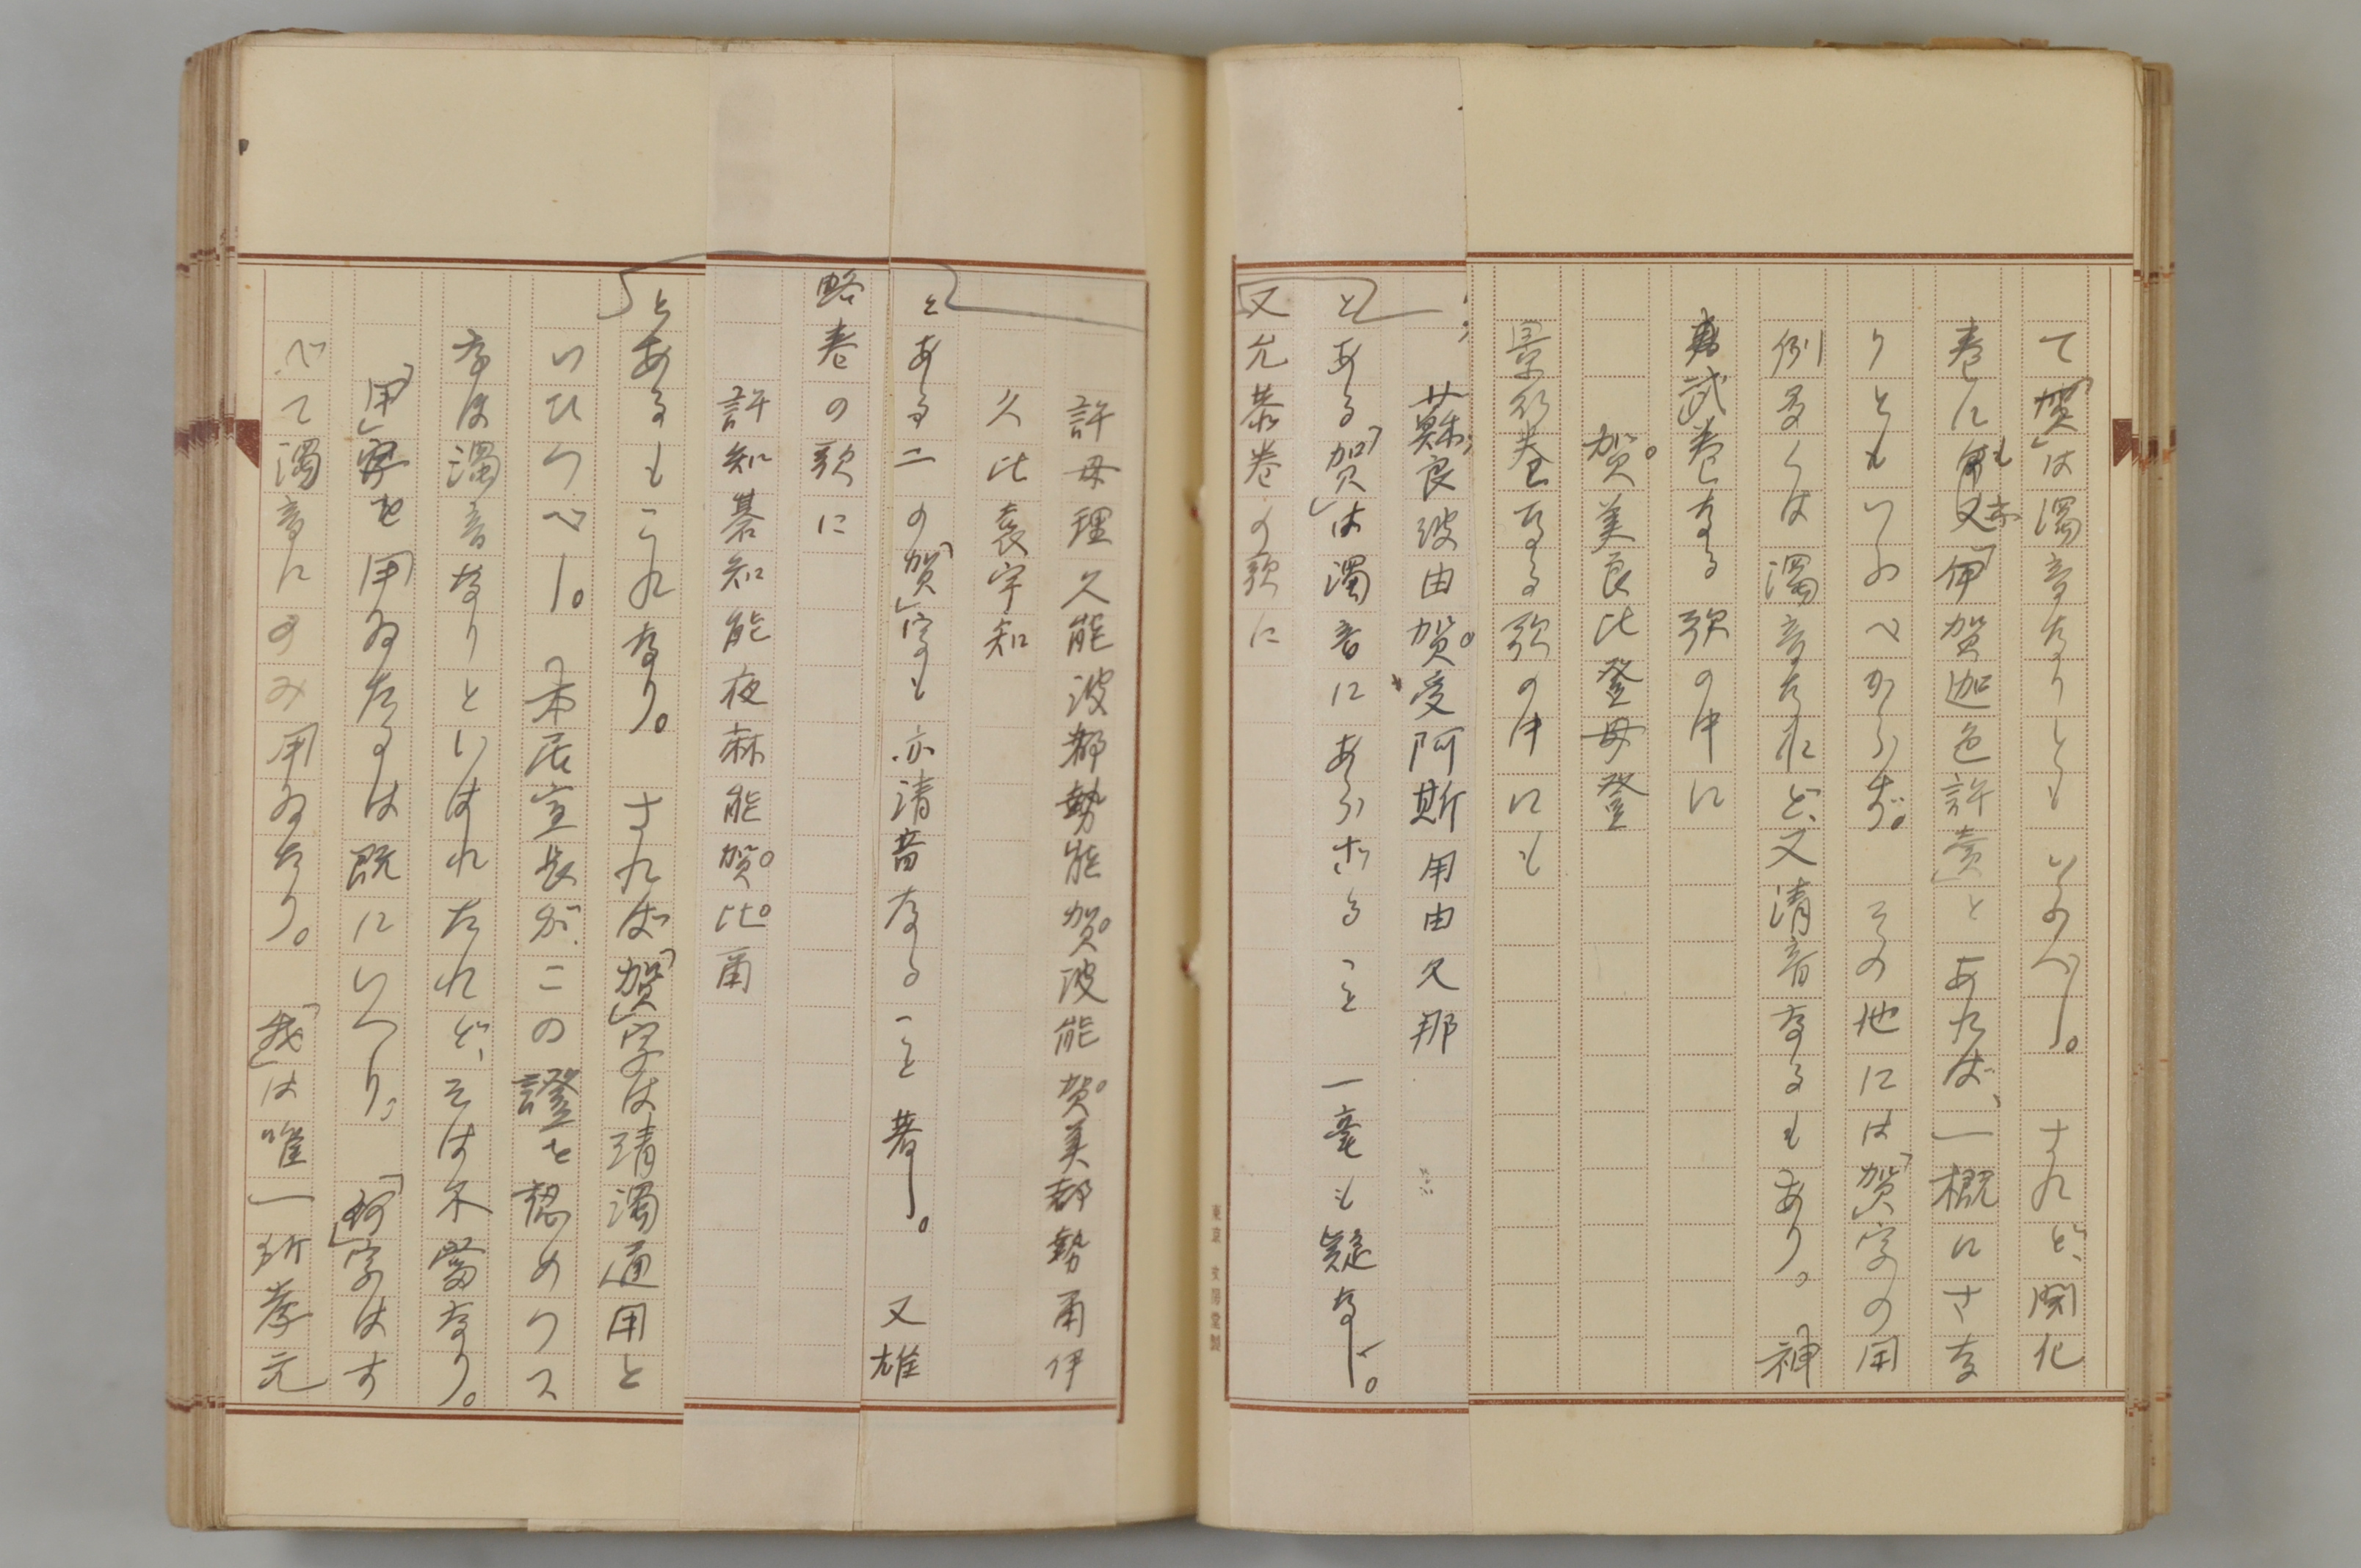 て「賀」は濁音なりともいふべし。されど、開化
巻にも亦「伊賀迦色許賣」とあれば、一概にさな
りともいふべからず。その他には「賀」字の用
例多くは濁音なれど、又清音なるもあり。神
武巻なる歌の中に
賀美良比登母登
景行巻なる歌の中にも
蘇良波由賀受阿斯用由久那
とある「賀」は濁音にあらざること一毫も疑なし。
又允恭巻の歌に
許母理久能波都勢能賀波能賀美都勢爾伊
久比袁宇知
とある二の「賀」字も亦清音なること著し。又雄
略巻の歌に
許知碁知能夜麻能賀比爾
とあるもこれなり。されば「賀」字は清濁通用と
いひつべし。本居宣長が、この證を認めつつ
なほ濁音なりといはれたれど、そは不當なり。
「甲」字を用ゐたるは既にいへり。「何」字はす
べて濁音にのみ用ゐたり。「我」は唯一所孝元
東京 文房堂製